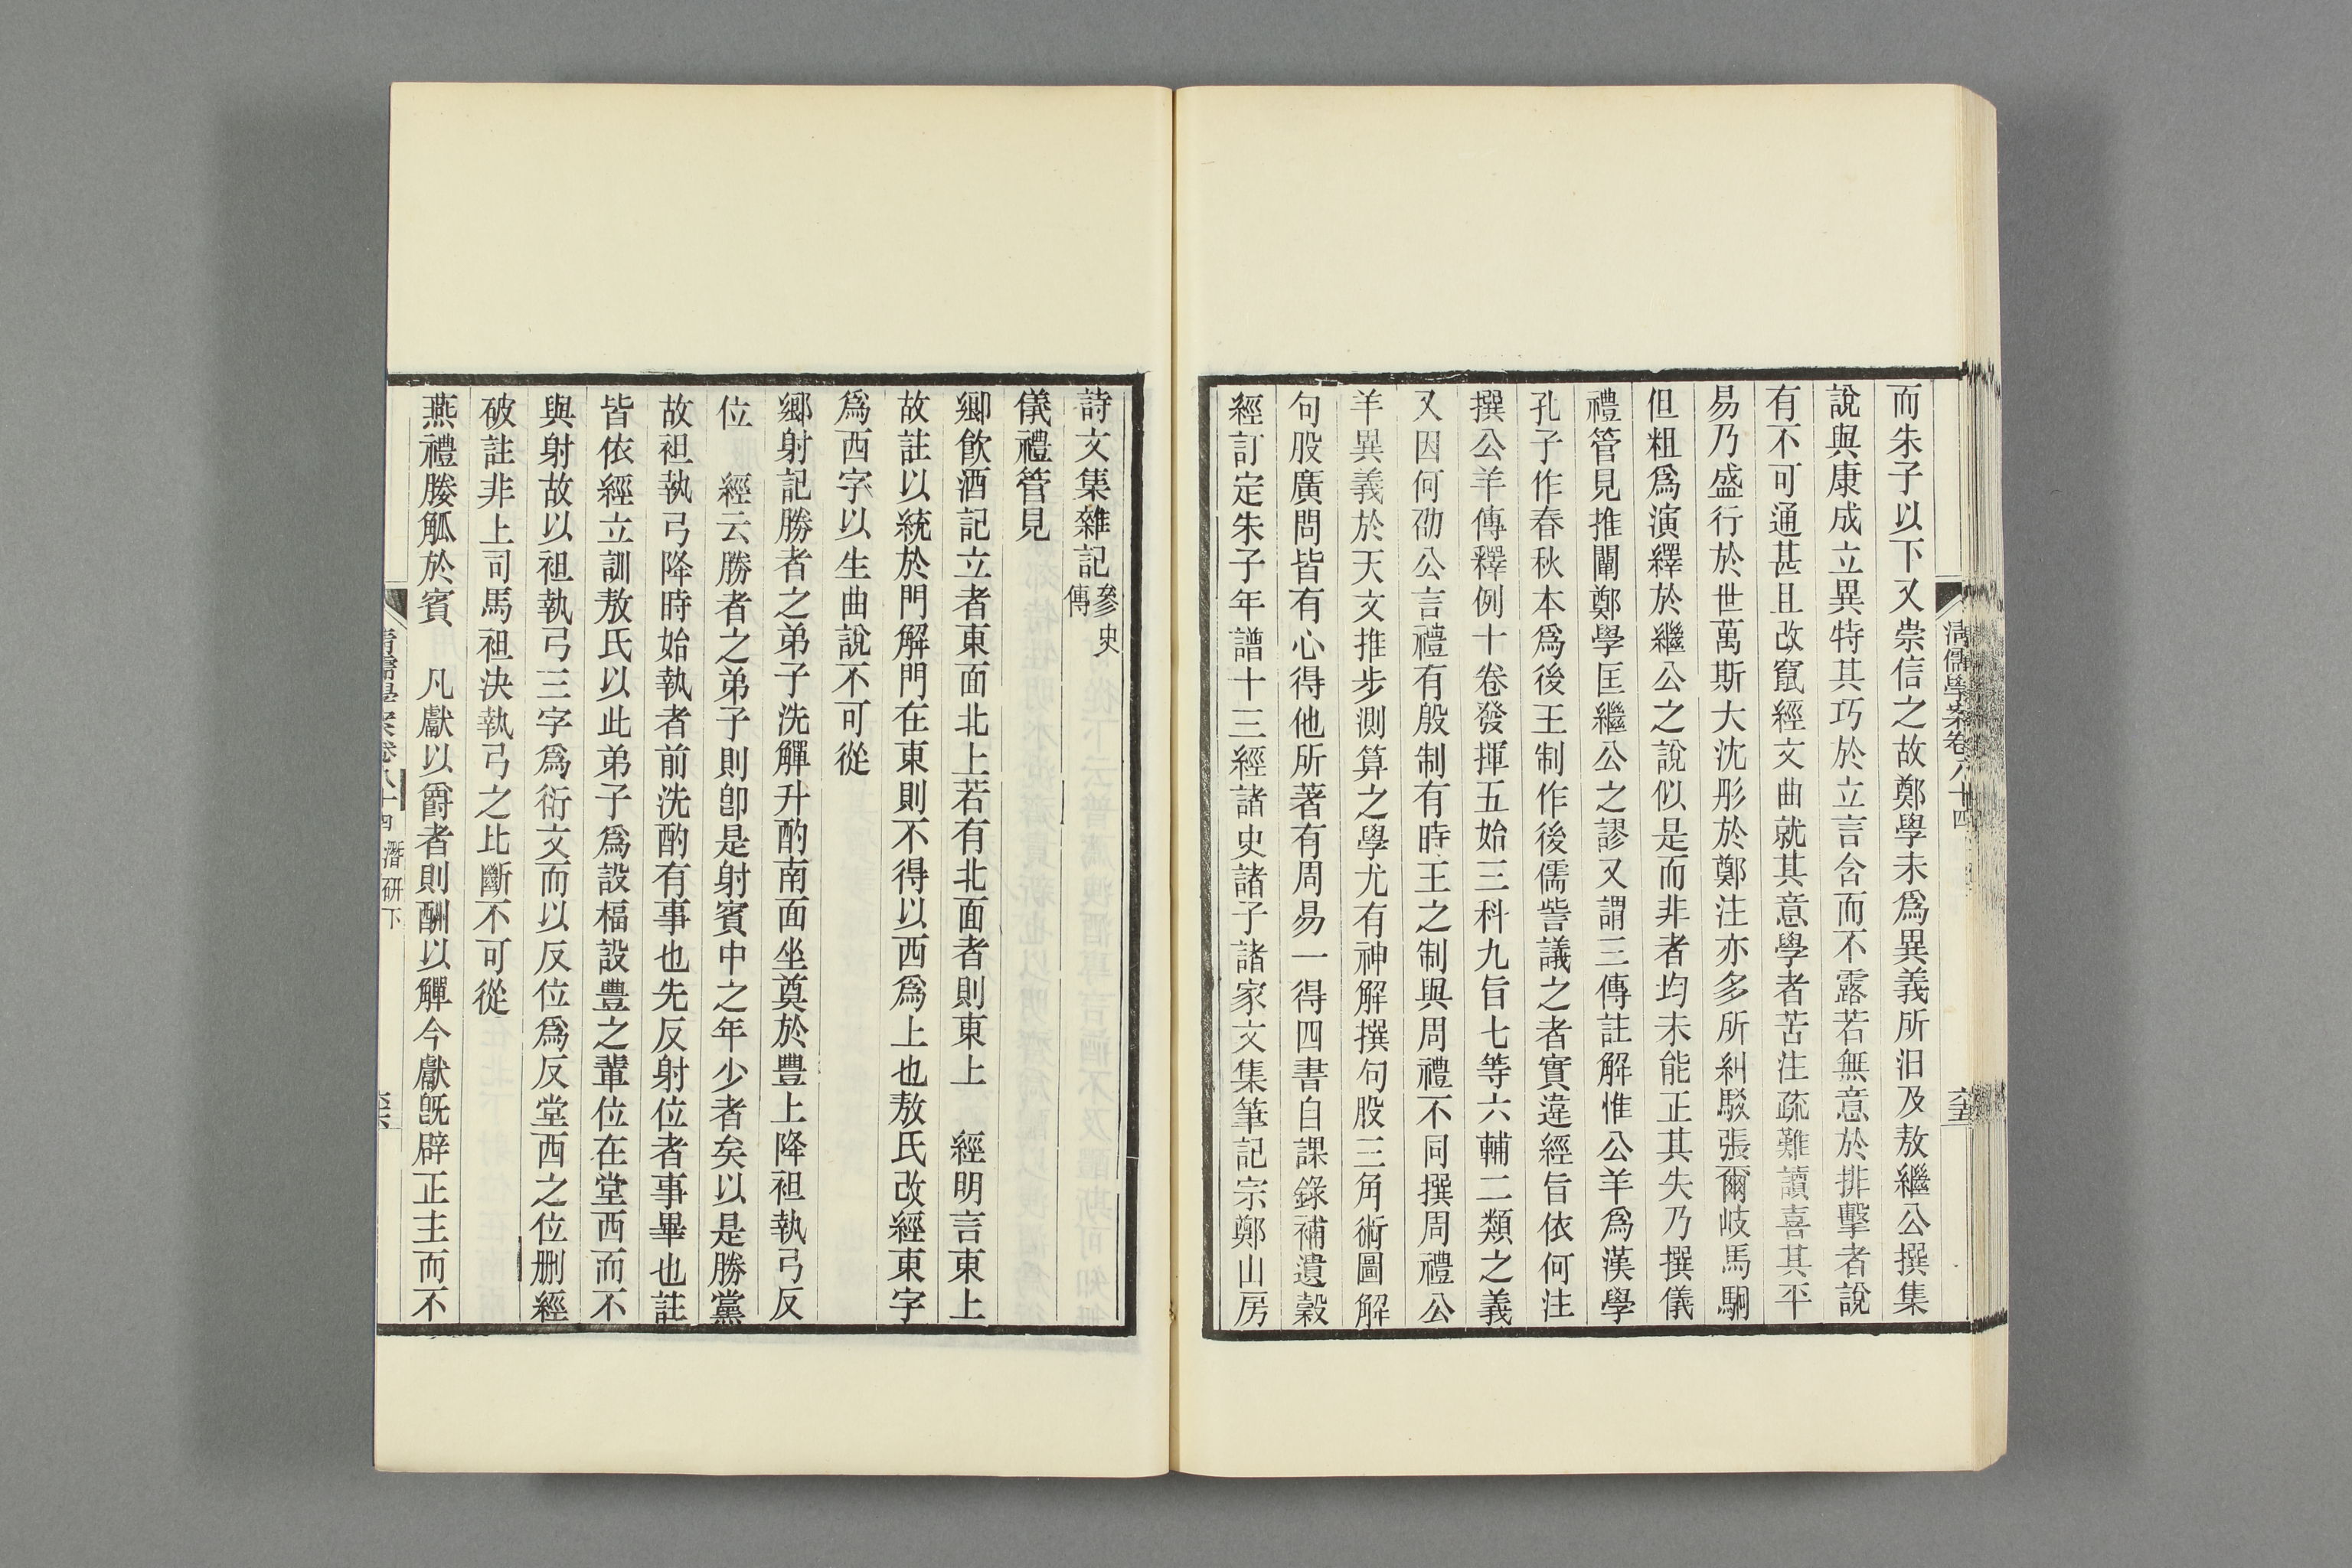 清儒學案卷八十四
而朱子以下又崇信之故鄭學未爲異義所汨及敖繼公撰集
說與康成立異特其巧於立言含而不露若無意於排擊者說
有不可通甚且改竄經文曲就其意學者苦注疏難讀喜其平
易乃盛行於世萬斯大沈彤於鄭注亦多所糾駁張爾岐馬駉
但粗爲演繹於繼公之說似是而非者均未能正其失乃撰儀
禮管見推闡鄭學匡繼公之謬又謂三傳註解惟公羊爲漢學
孔子作春秋本爲後王制作後儒訾議之者實違經旨依何注
撰公羊傳釋例十卷發揮五始三科九旨七等六輔二類之義
又因何劭公言禮有殷制有時王之制與周禮不同撰周禮公
羊異義於天文推步測算之學尤有神解撰句股三角術圖解
句股廣問皆有心得他所著有周易一得四書自課錄補遺穀
經訂定朱子年譜十三經諸史諸子諸家文集筆記宗鄭山房
詩文集雜記參史傳
儀禮管見
鄉飲酒記立者東面北上若有北面者則東上　經明言東上
故註以統於門解門在東則不得以西爲上也敖氏改經東字
爲西字以生曲說不可從
鄉射記勝者之弟子洗觶升酌南面坐奠於豐上降袒執弓反
位　經云勝者之弟子則卽是射賓中之年少者矣以是勝黨
故袒執弓降時始執者前洗酌有事也先反射位者事畢也註
皆依經立訓敖氏以此弟子爲設楅設豐之輩位在堂西而不
與射故以袒執弓三字爲衍文而以反位爲反堂西之位刪經
破註非上司馬袒決執弓之比斷不可從
燕禮媵觚於賓　凡獻以爵者則酬以觶今獻旣辟正主而不
清儒學案卷八十四 潛研下